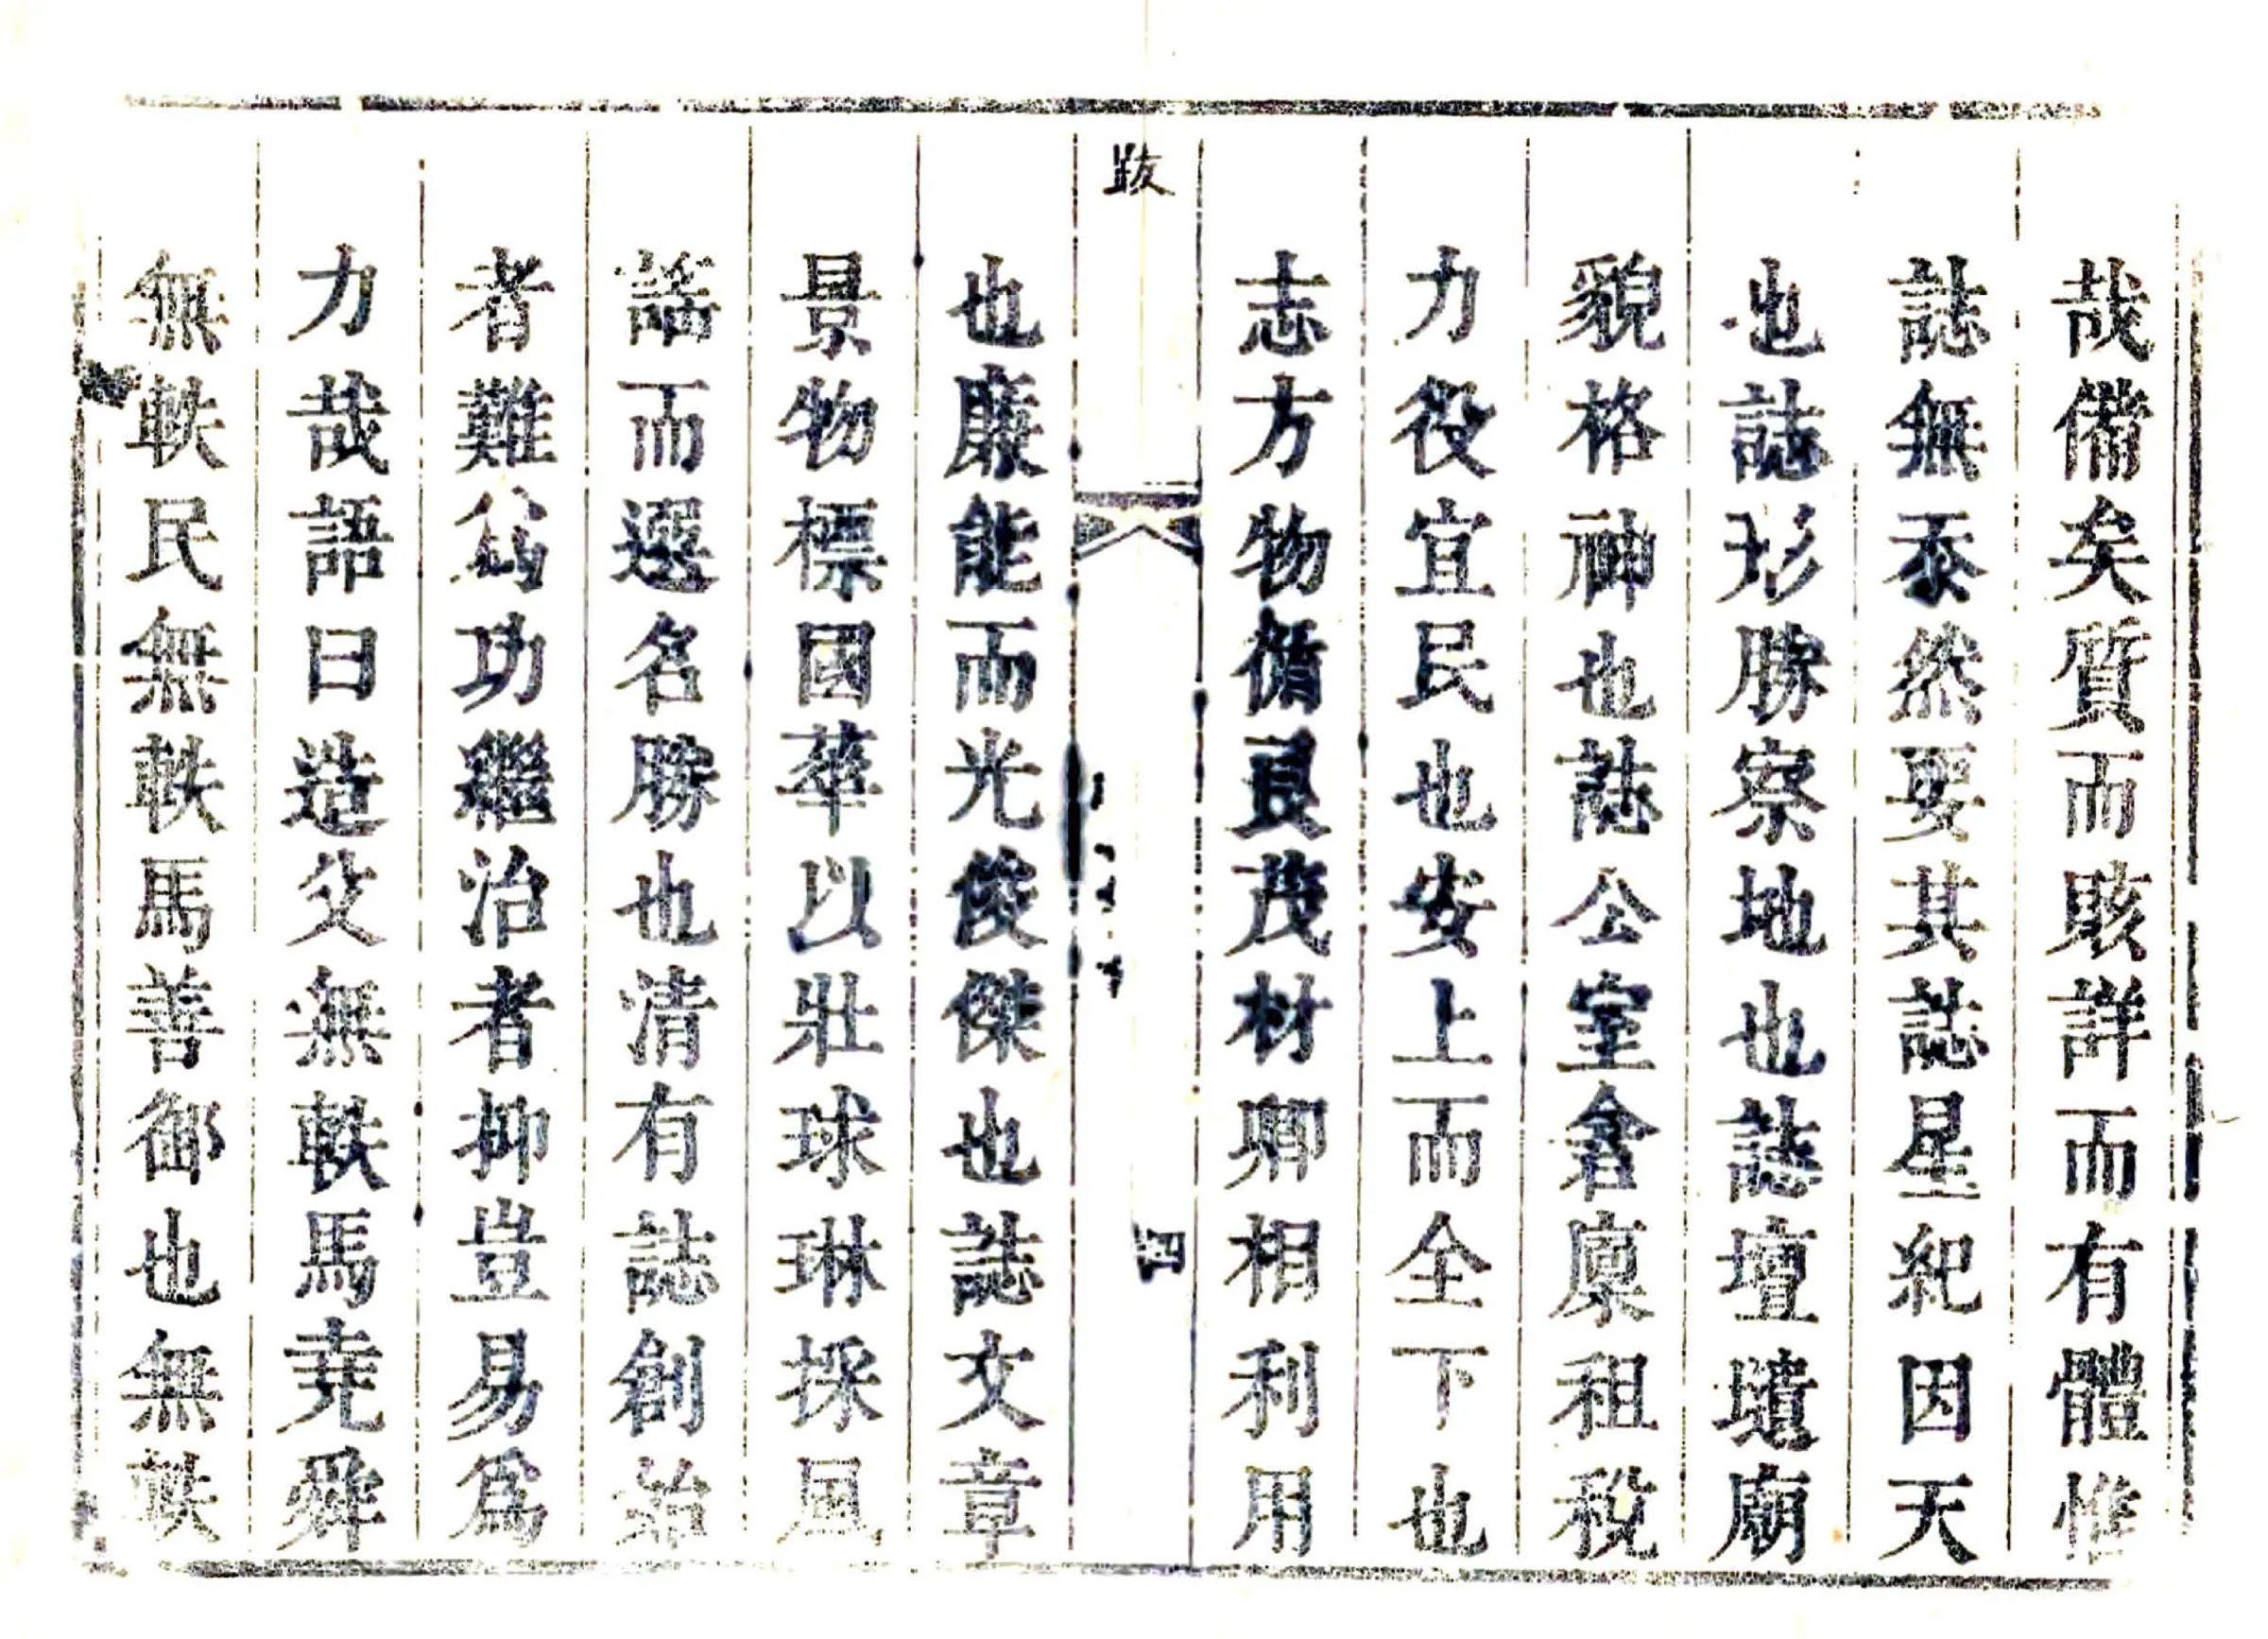 哉備矣質而賅詳而有體惟
誌無忝然要其誌星紀因天
也誌形勝察地也誌壇壝廟
貌格神也誌公室倉廩租稅
力役宜民也安上而全下也
志方物循良茂材卿相利用
跋
四
也廉能而光俊傑也誌文章
景物標國華以壯球琳採風
謡而選名勝也清有誌創始
者難爲功繼治者抑豈易爲
力哉語曰造父無軼馬堯舜
無軼民無軼馬善御也無軼